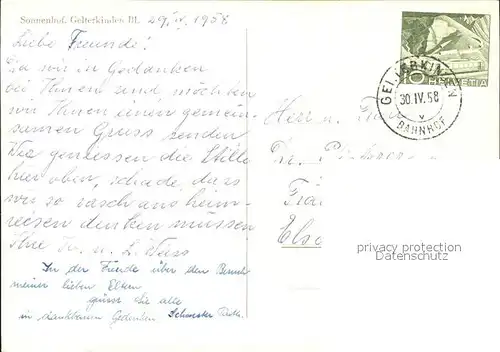 Sonnenhof. Gelterkinden BL.
29. IV. 1958
Liebe Freunde!
Da wir in Gedanken
bei Ihnen sind möchten
wir Ihnen einen gemein-
samen Gruss senden
Wir geniessen die Stille
hier oben, schade, dass
wir so rasch ans heim-
reisen denken müssen
Ihre
In der Freude über den Besuch
meiner lieben Eltern
grüsst Sie alle
in dankbarem Gedenken Schwester
10 HELVETIA
GELTERKINDEN
30. IV. 58
BAHNHOF
Herrn u.
Dr.
privacy protection
Datenschutz